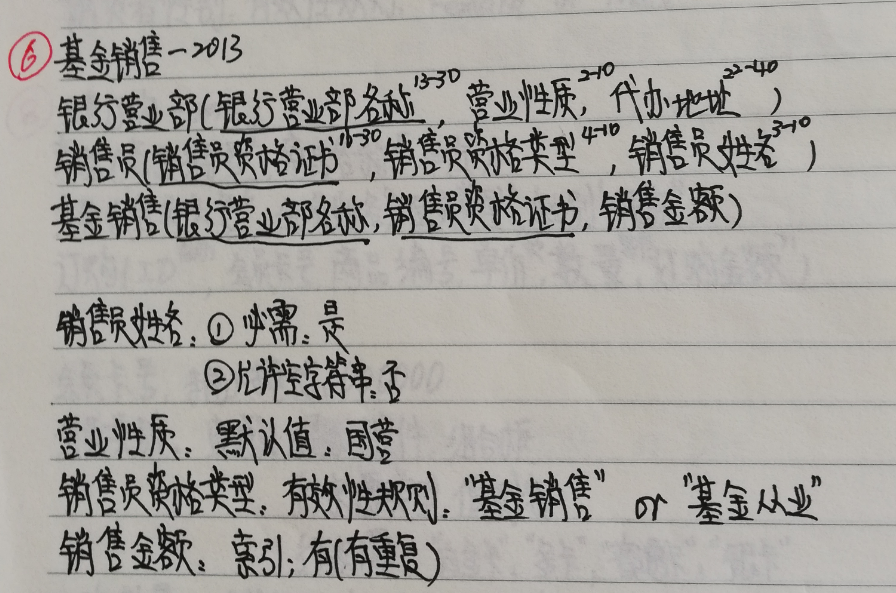 ⑥ 基金销售-2013
银行营业部(银行营业部名称13-30, 营业性质2-10, 代办地址22-40)
销售员(销售员资格证书18-30, 销售员资格类型4-10, 销售员姓名3-10)
基金销售(银行营业部名称, 销售员资格证书, 销售金额)
销售员姓名: ①必需: 是
②允许空字符串: 否
营业性质: 默认值: 国营
销售员资格类型: 有效性规则: "基金销售" or "基金从业"
销售金额: 索引: 有(有重复)